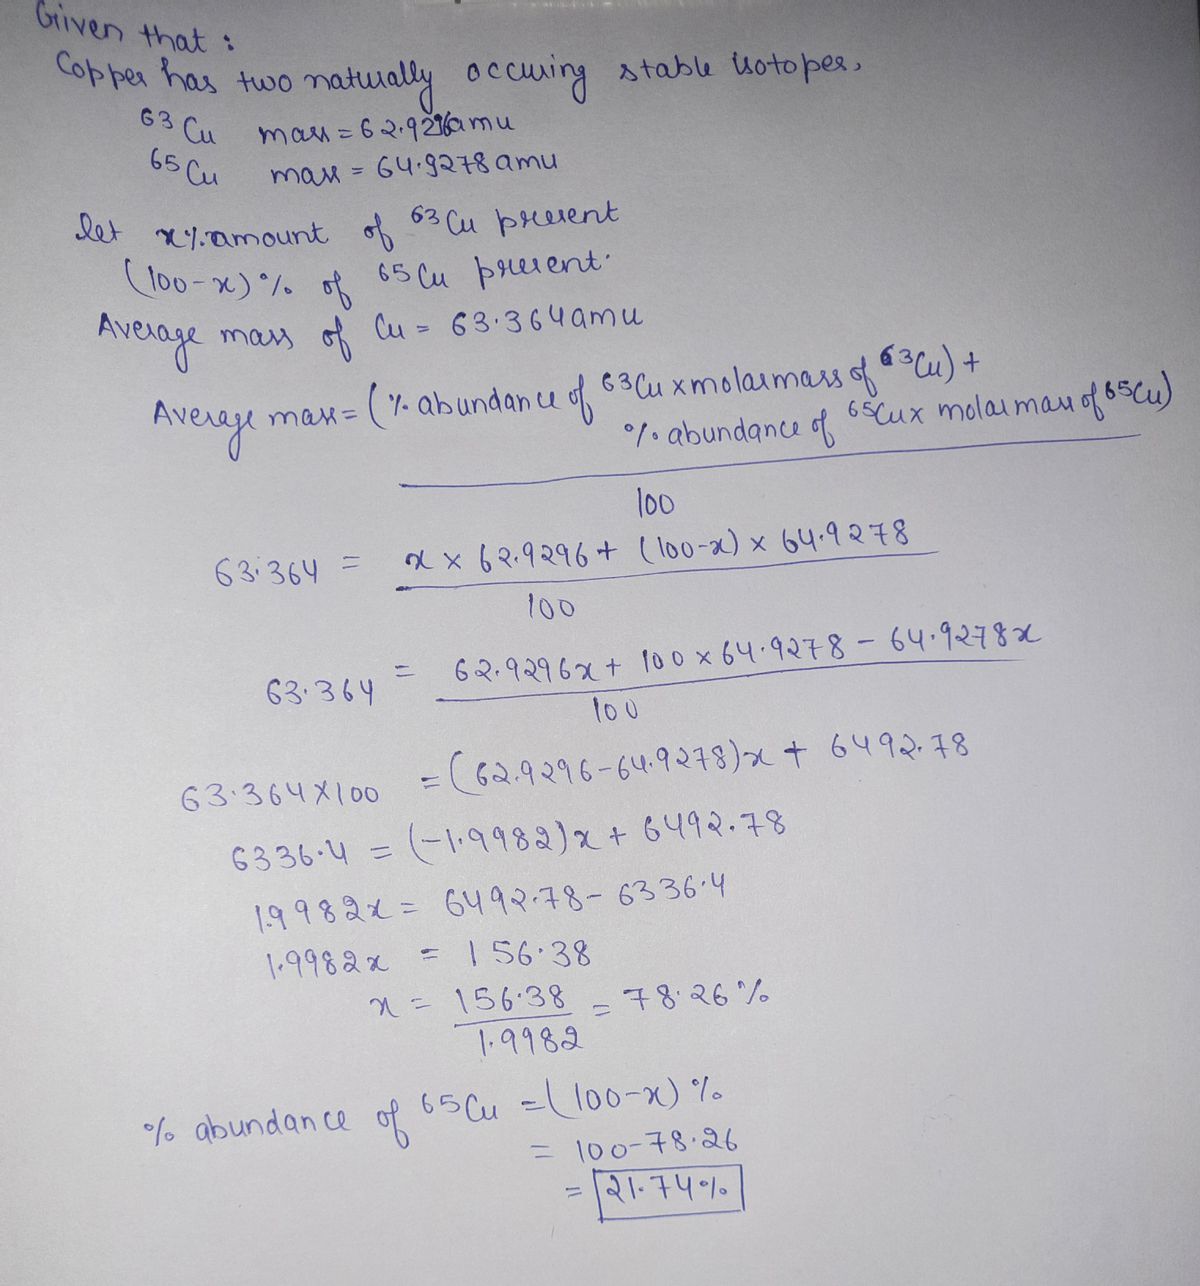 Given that :
Copper has two naturally occuring stable isotopes,
⁶³Cu mass = 62.9296amu
⁶⁵Cu mass = 64.9278 amu
let x% amount of ⁶³Cu present
(100-x)% of ⁶⁵Cu present.
Average mass of Cu = 63.364amu
Average mass = (% abundance of ⁶³Cu x molar mass of ⁶³Cu) +
% abundance of ⁶⁵Cu x molar mass of ⁶⁵Cu)
100
63.364 = x × 62.9296 + (100-x) × 64.9278
100
63.364 = 62.9296x + 100 × 64.9278 - 64.9278x
100
63.364 × 100 = (62.9296-64.9278)x + 6492.78
6336.4 = (-1.9982)x + 6492.78
1.9982x = 6492.78 - 6336.4
1.9982x = 156.38
x = 156.38 = 78.26%
1.9982
% abundance of ⁶⁵Cu = (100-x) %
= 100-78.26
= 21.74%